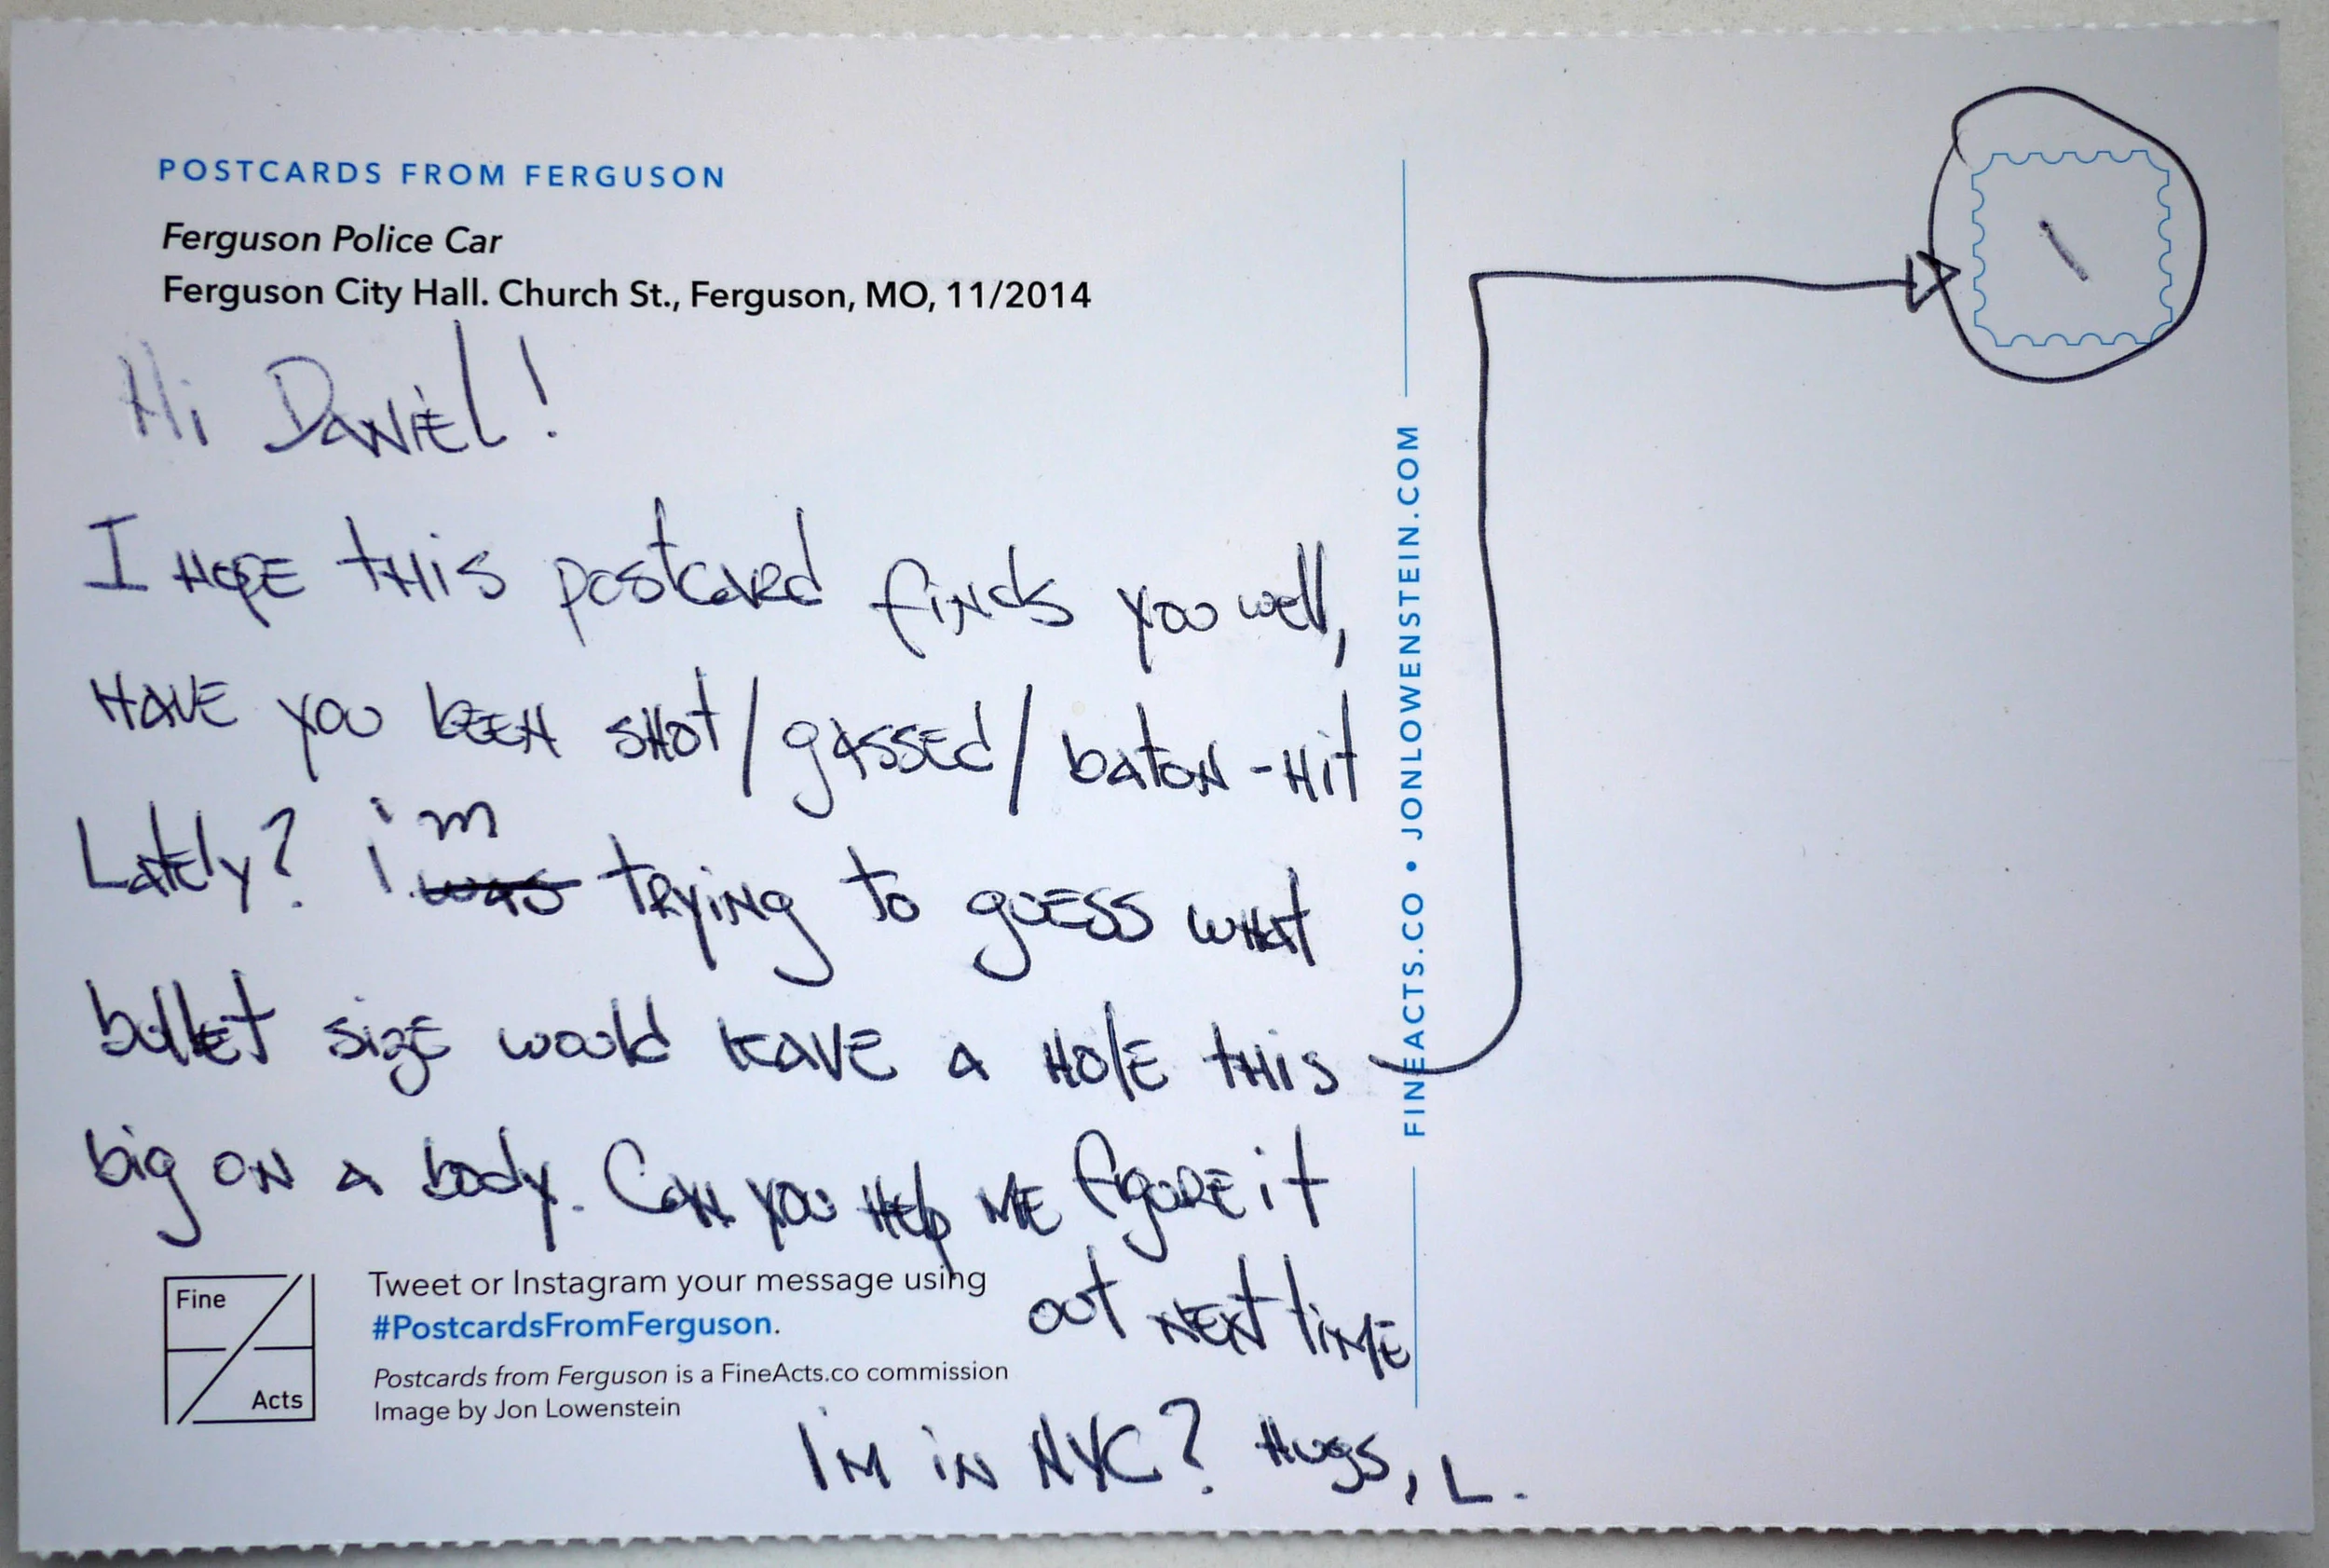 POSTCARDS FROM FERGUSON
Ferguson Police Car
Ferguson City Hall. Church St., Ferguson, MO, 11/2014
Hi Daniel!
I hope this postcard finds you well,
have you been shot/gassed/baton-hit
Lately? i was i'm trying to guess what
bullet size would leave a hole this
big on a body. Can you help me figure it
out next time
I'm in NYC? Hugs, L.
Fine
Acts
Tweet or Instagram your message using
#PostcardsFromFerguson.
Postcards from Ferguson is a FineActs.co commission
Image by Jon Lowenstein
FINEACTS.CO • JONLOWENSTEIN.COM